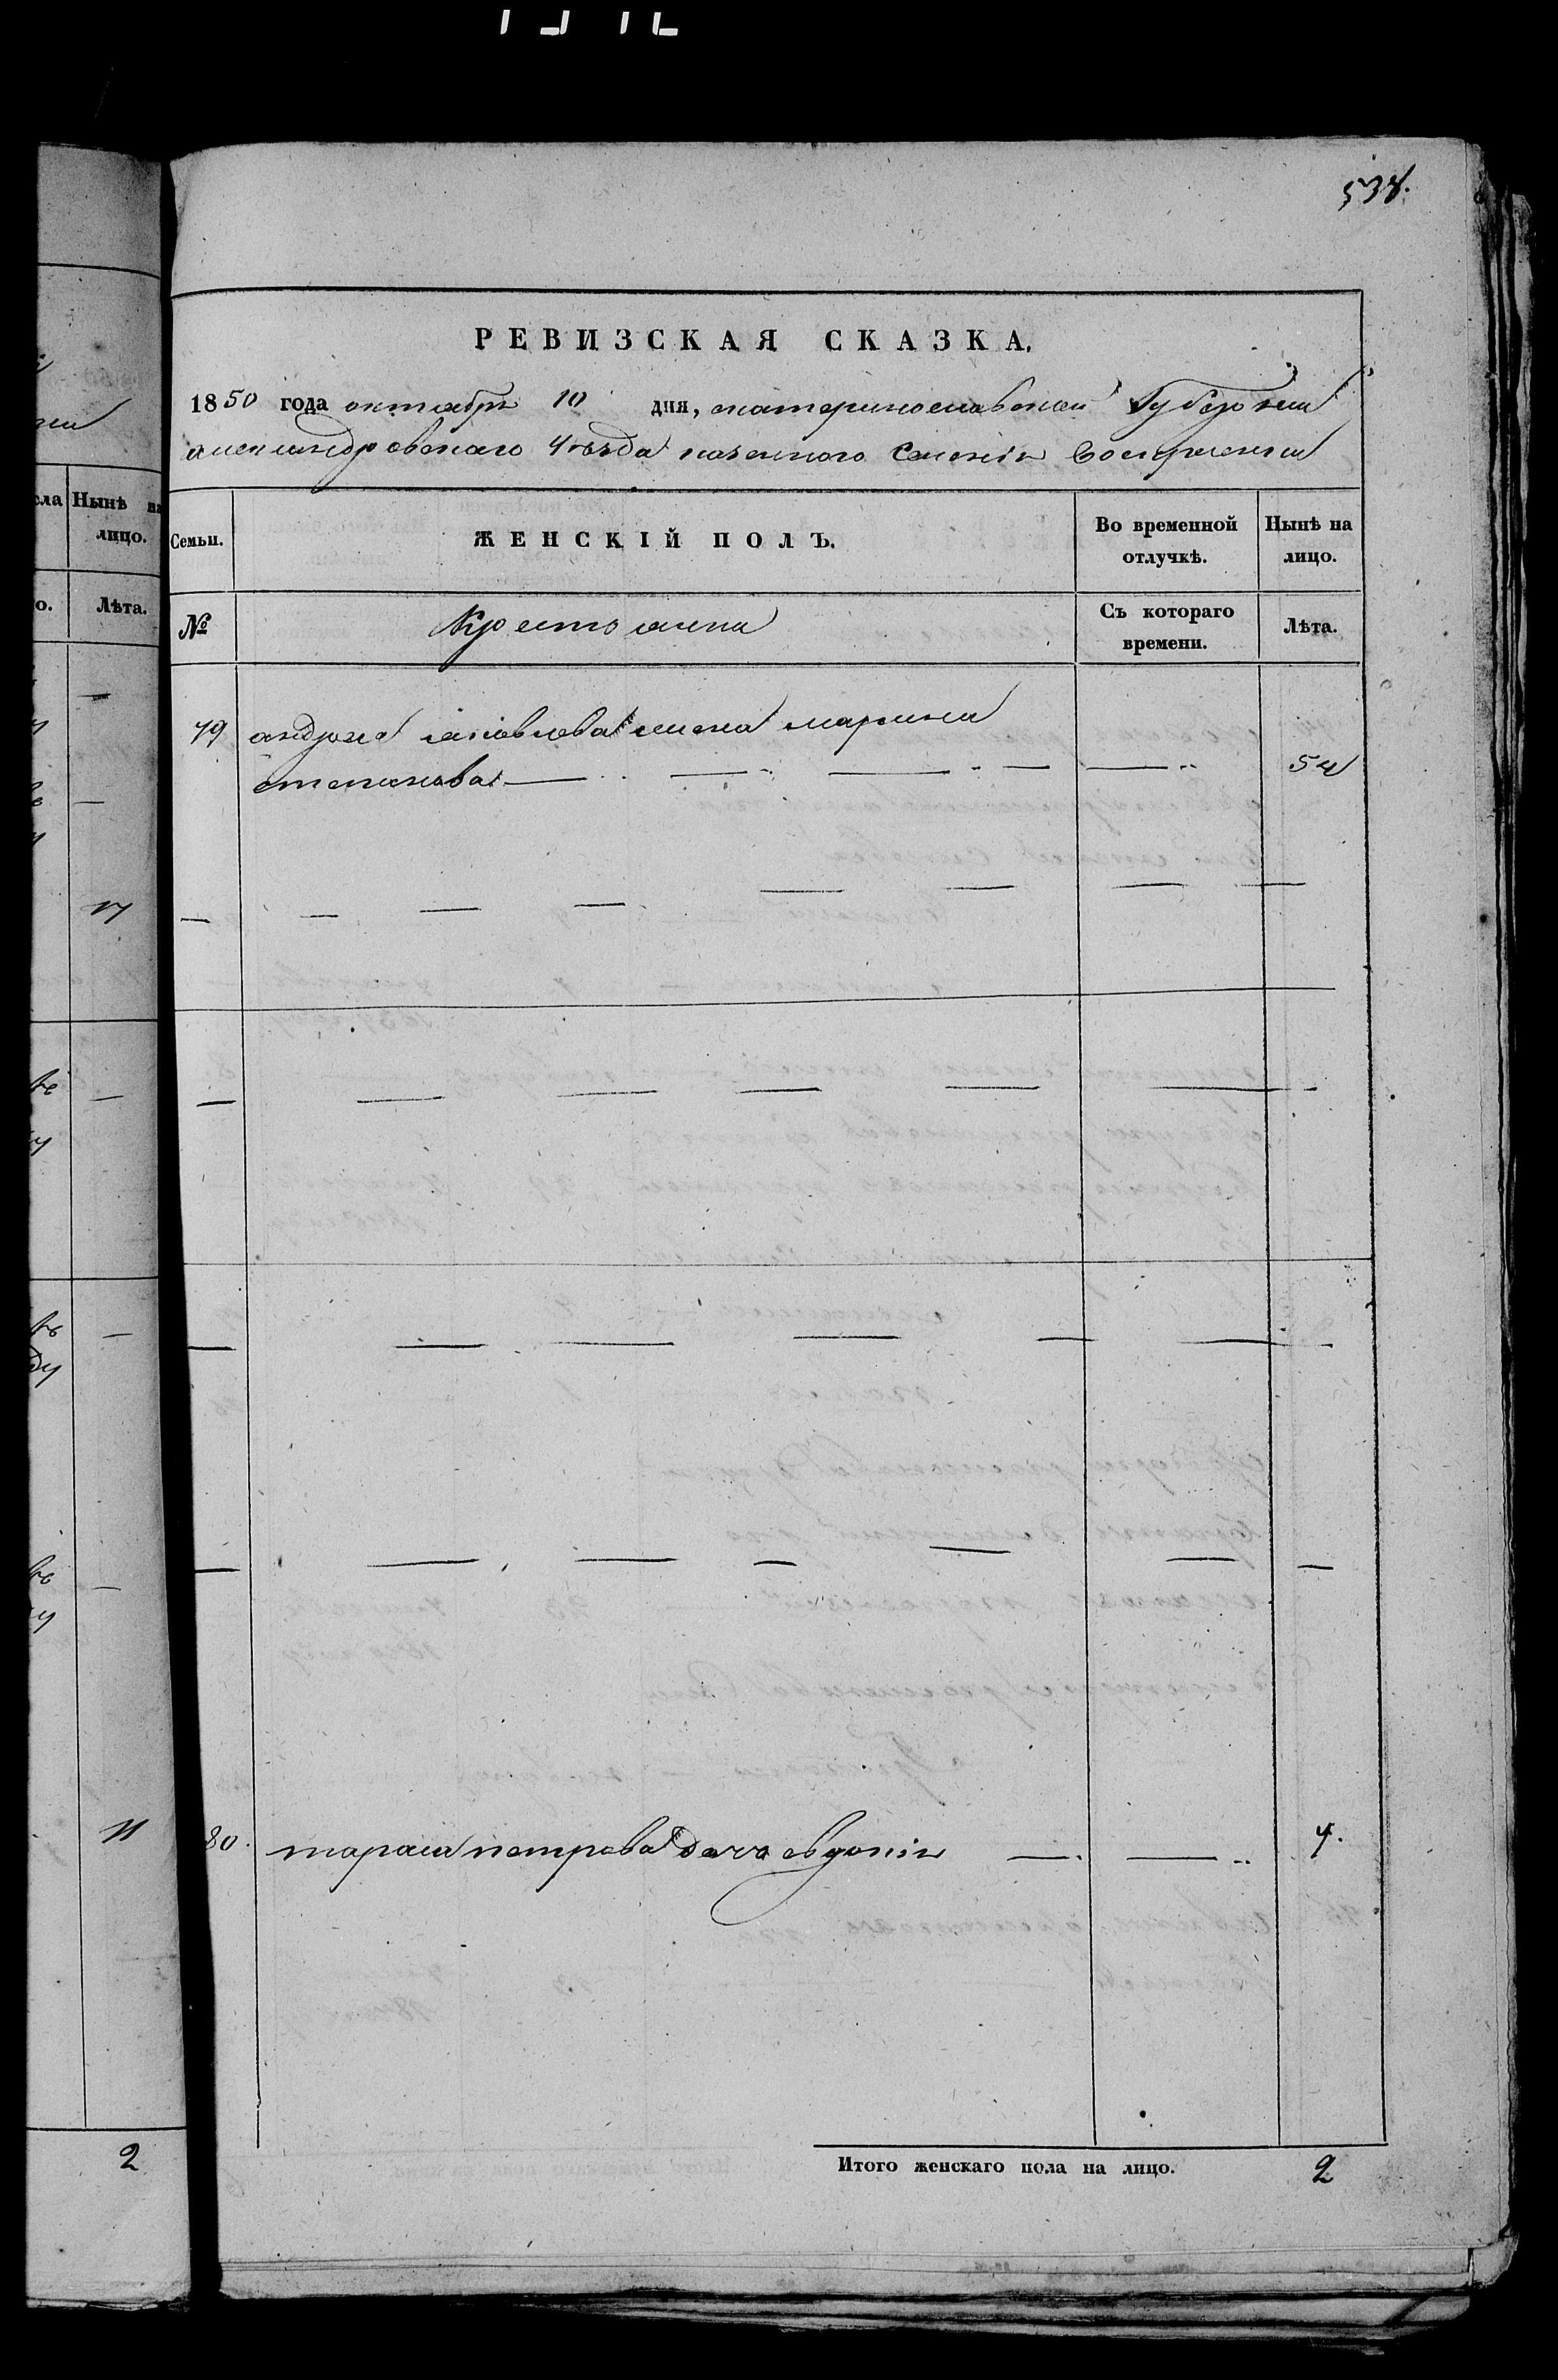 538.
РЕВИЗСКАЯ СКАЗКА.
1850 года октября 10 дня, екатеринославской Губернии
александровскаго Уезда казенного Селения Воскресенки
Семьи. ЖЕНСКІЙ ПОЛЪ. Во временной отлучкѣ. Нынѣ на лицо.
№ Крестьянки Съ котораго времени. Лѣта.
79 андрея яковлева жена марина
степанова — — — — — 54
80. тараса петрова дочь евдокия — — 4.
Итого женскаго пола на лицо. 2
сла Нынѣ на
лицо.
о. Лѣта.
17
11
2